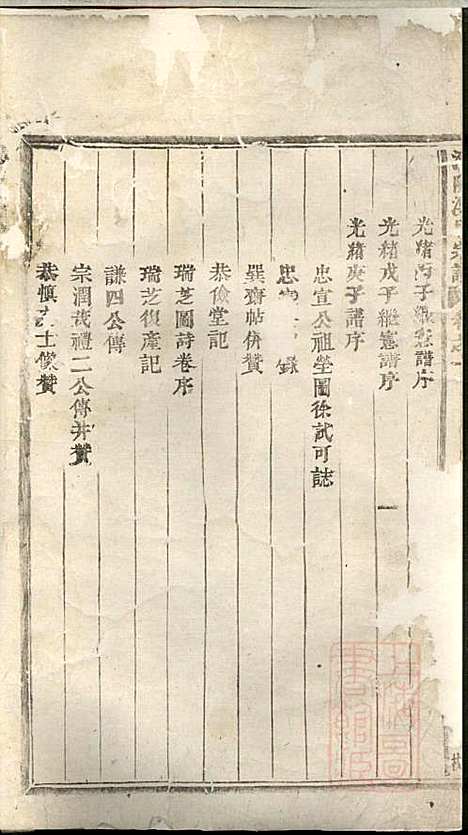 光緒丙子繼憲譜序
光緒戊子繼憲譜序
光緒庚子譜序
忠宣公祖塋圖徐試可誌
忠 錄
巽齋帖併贊
恭儉堂記
瑞芝圖詩卷序
瑞芝復產記
謙四公傳
宗潤茂禮二公傳并贊
恭慎 士像贊
宗譜 卷之一
上海圖書館藏